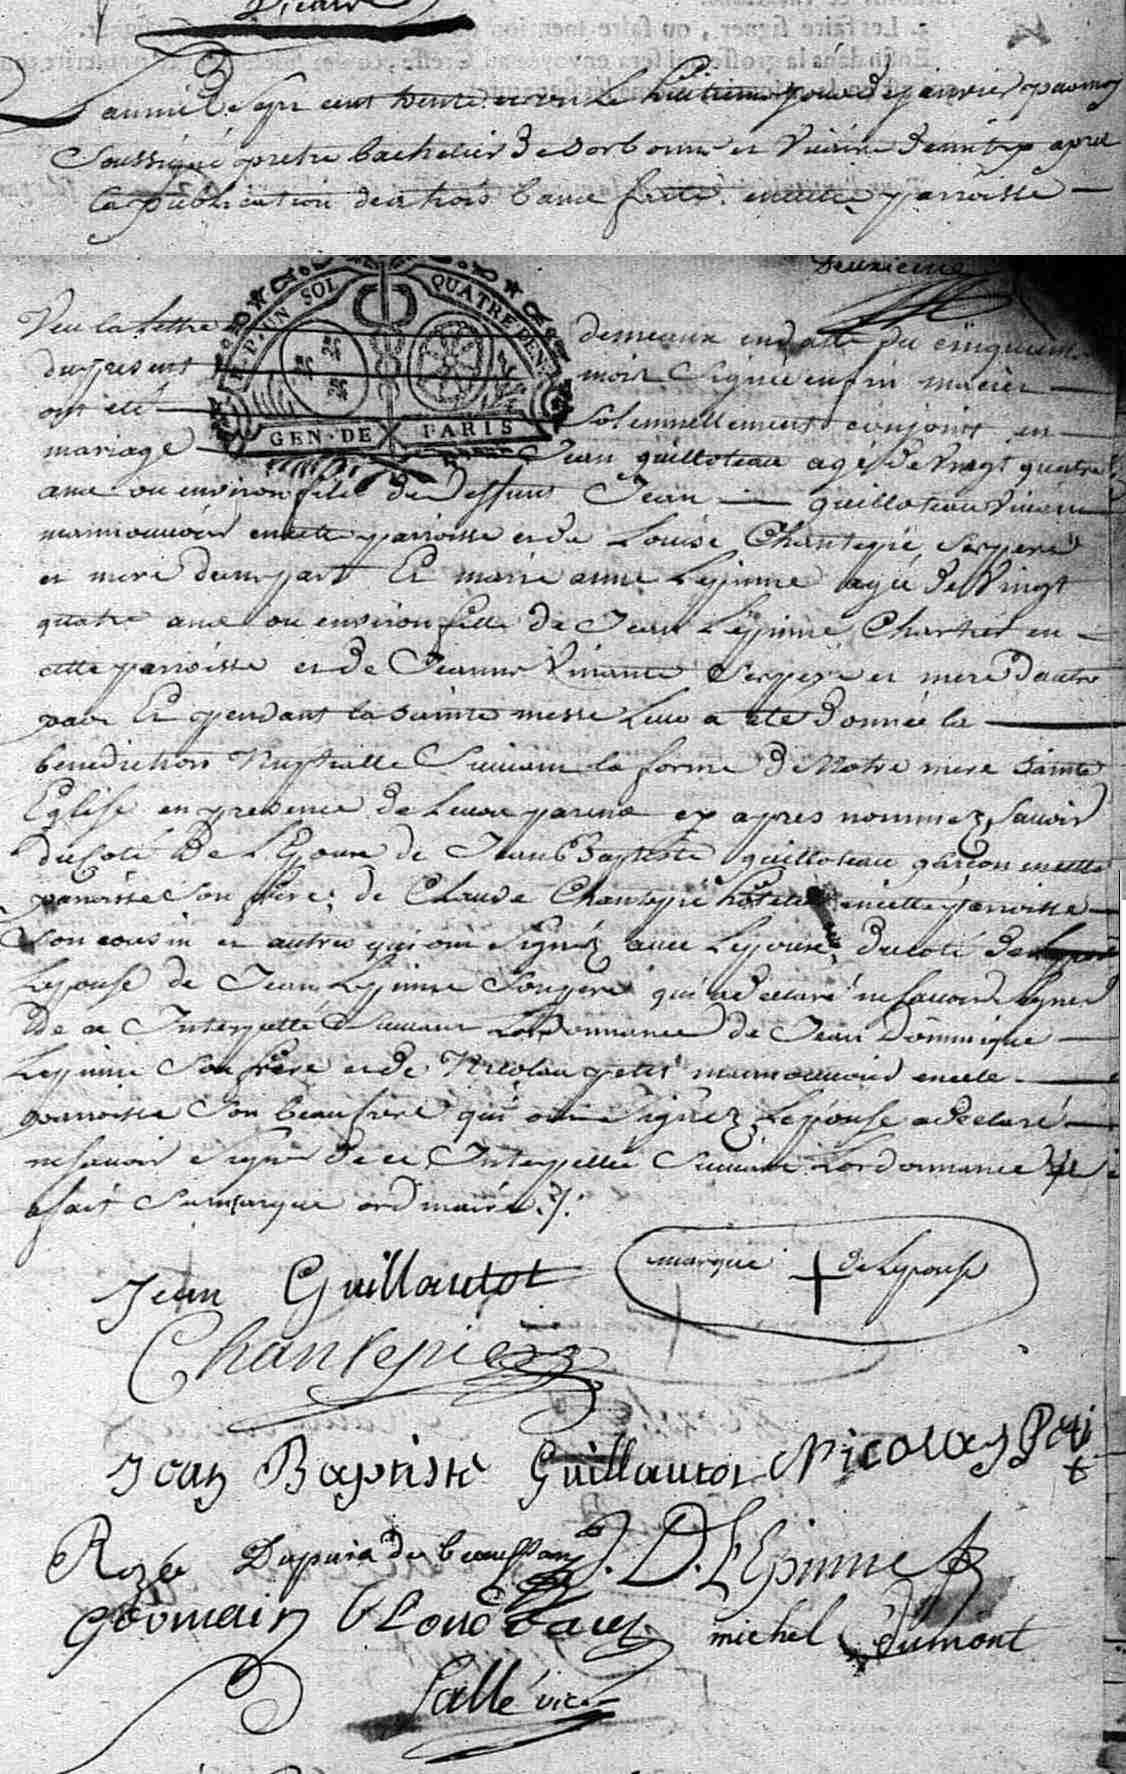 Vicaire
L'an mil Sept cent trente et un Le huitieme jour de janvier par moy
Soussigné pretre bachelier de Sorbonne et Vicaire apres
la publication des trois bans faite en cette parroisse
Deuxieme
Veu la Lettre de meaux en datte du cinquieme
du present mois Signée enfin
ont été Solennellement conjoints en
mariage Jean guilloteau agé de Vingt quatre
ans ou environ fils de Deffunt Jean guilloteau Vivant
mannouvrier en cette parroisse et de Louise Chantepié Ses pere
et mere d'une part Et marie anne Lepinne agée de Vingt
quatre ans ou environ fille de Jean Lepinne Chartier en
cette parroisse et de Jeanne Ses pere et mere d'autre
part Et pendant la Sainte messe Leur a été donnée la
benediction Nuptialle Suivant la forme de Notre mere Sainte
Eglise en presence de Leurs parens cy apres nommez, Savoir
du Coté De L'Epoux de Jean Baptiste guilloteau garçon en cette
parroisse Son frere; de Claude Chantepié en cette parroisse
Son cousin et autres qui ont Signéz avec Lepoux, du coté de
Lepouse de Jean Lepinne Son pere qui a declaré ne Savoir Signer
de ce Interpellé Suivant Lordonnance de Jean Dominique
Lepinne Son frere et de Nicolas petit mannouvrier en cette
parroisse Son beau frere qui ont Signez, Lepouse a declaré
ne Savoir Signer de ce Interpellée Suivant Lordonnance et
a fait Sa marque ordinaire ./.
GEN. DE PARIS
UN SOL QUATRE DEN.
Jean Guillautot marque + de Lepouse
Chantepie
Jean Baptiste Guillautot Nicolas Peti
Roze Dupuis de J. D. L'Epinne
Germain blond michel Dumont
Sallé vic.